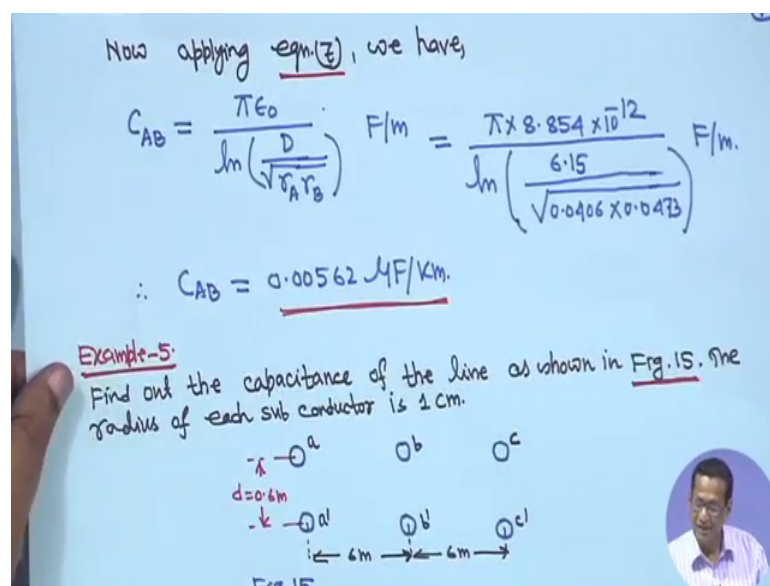 Now applying eqn.(Z), we have,
C_AB = πε0 / ln(D / √(r_A r_B)) F/m = π×8.854×10^-12 / ln(6.15 / √(0.0406×0.0473)) F/m.
∴ C_AB = 0.00562 μF/km.
Example-5.
Find out the capacitance of the line as shown in Fig.15. The
radius of each sub conductor is 1 cm.
a b c
d=0.6m
a' b' c'
6m 6m
Fig.15